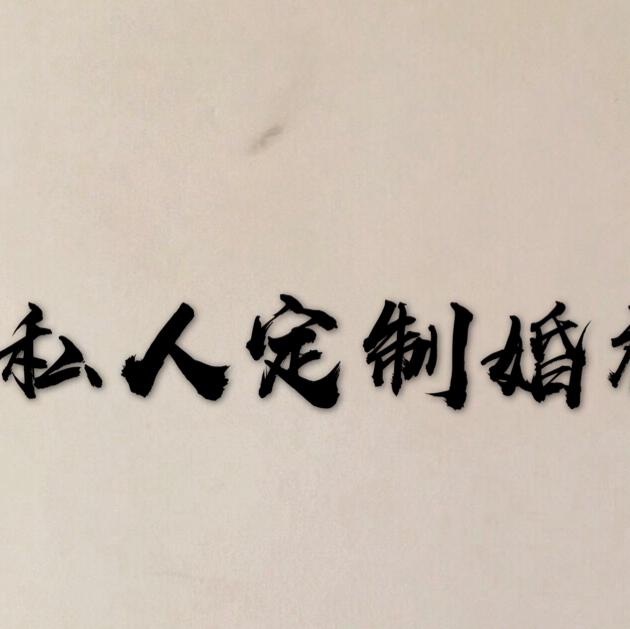 私人定制婚